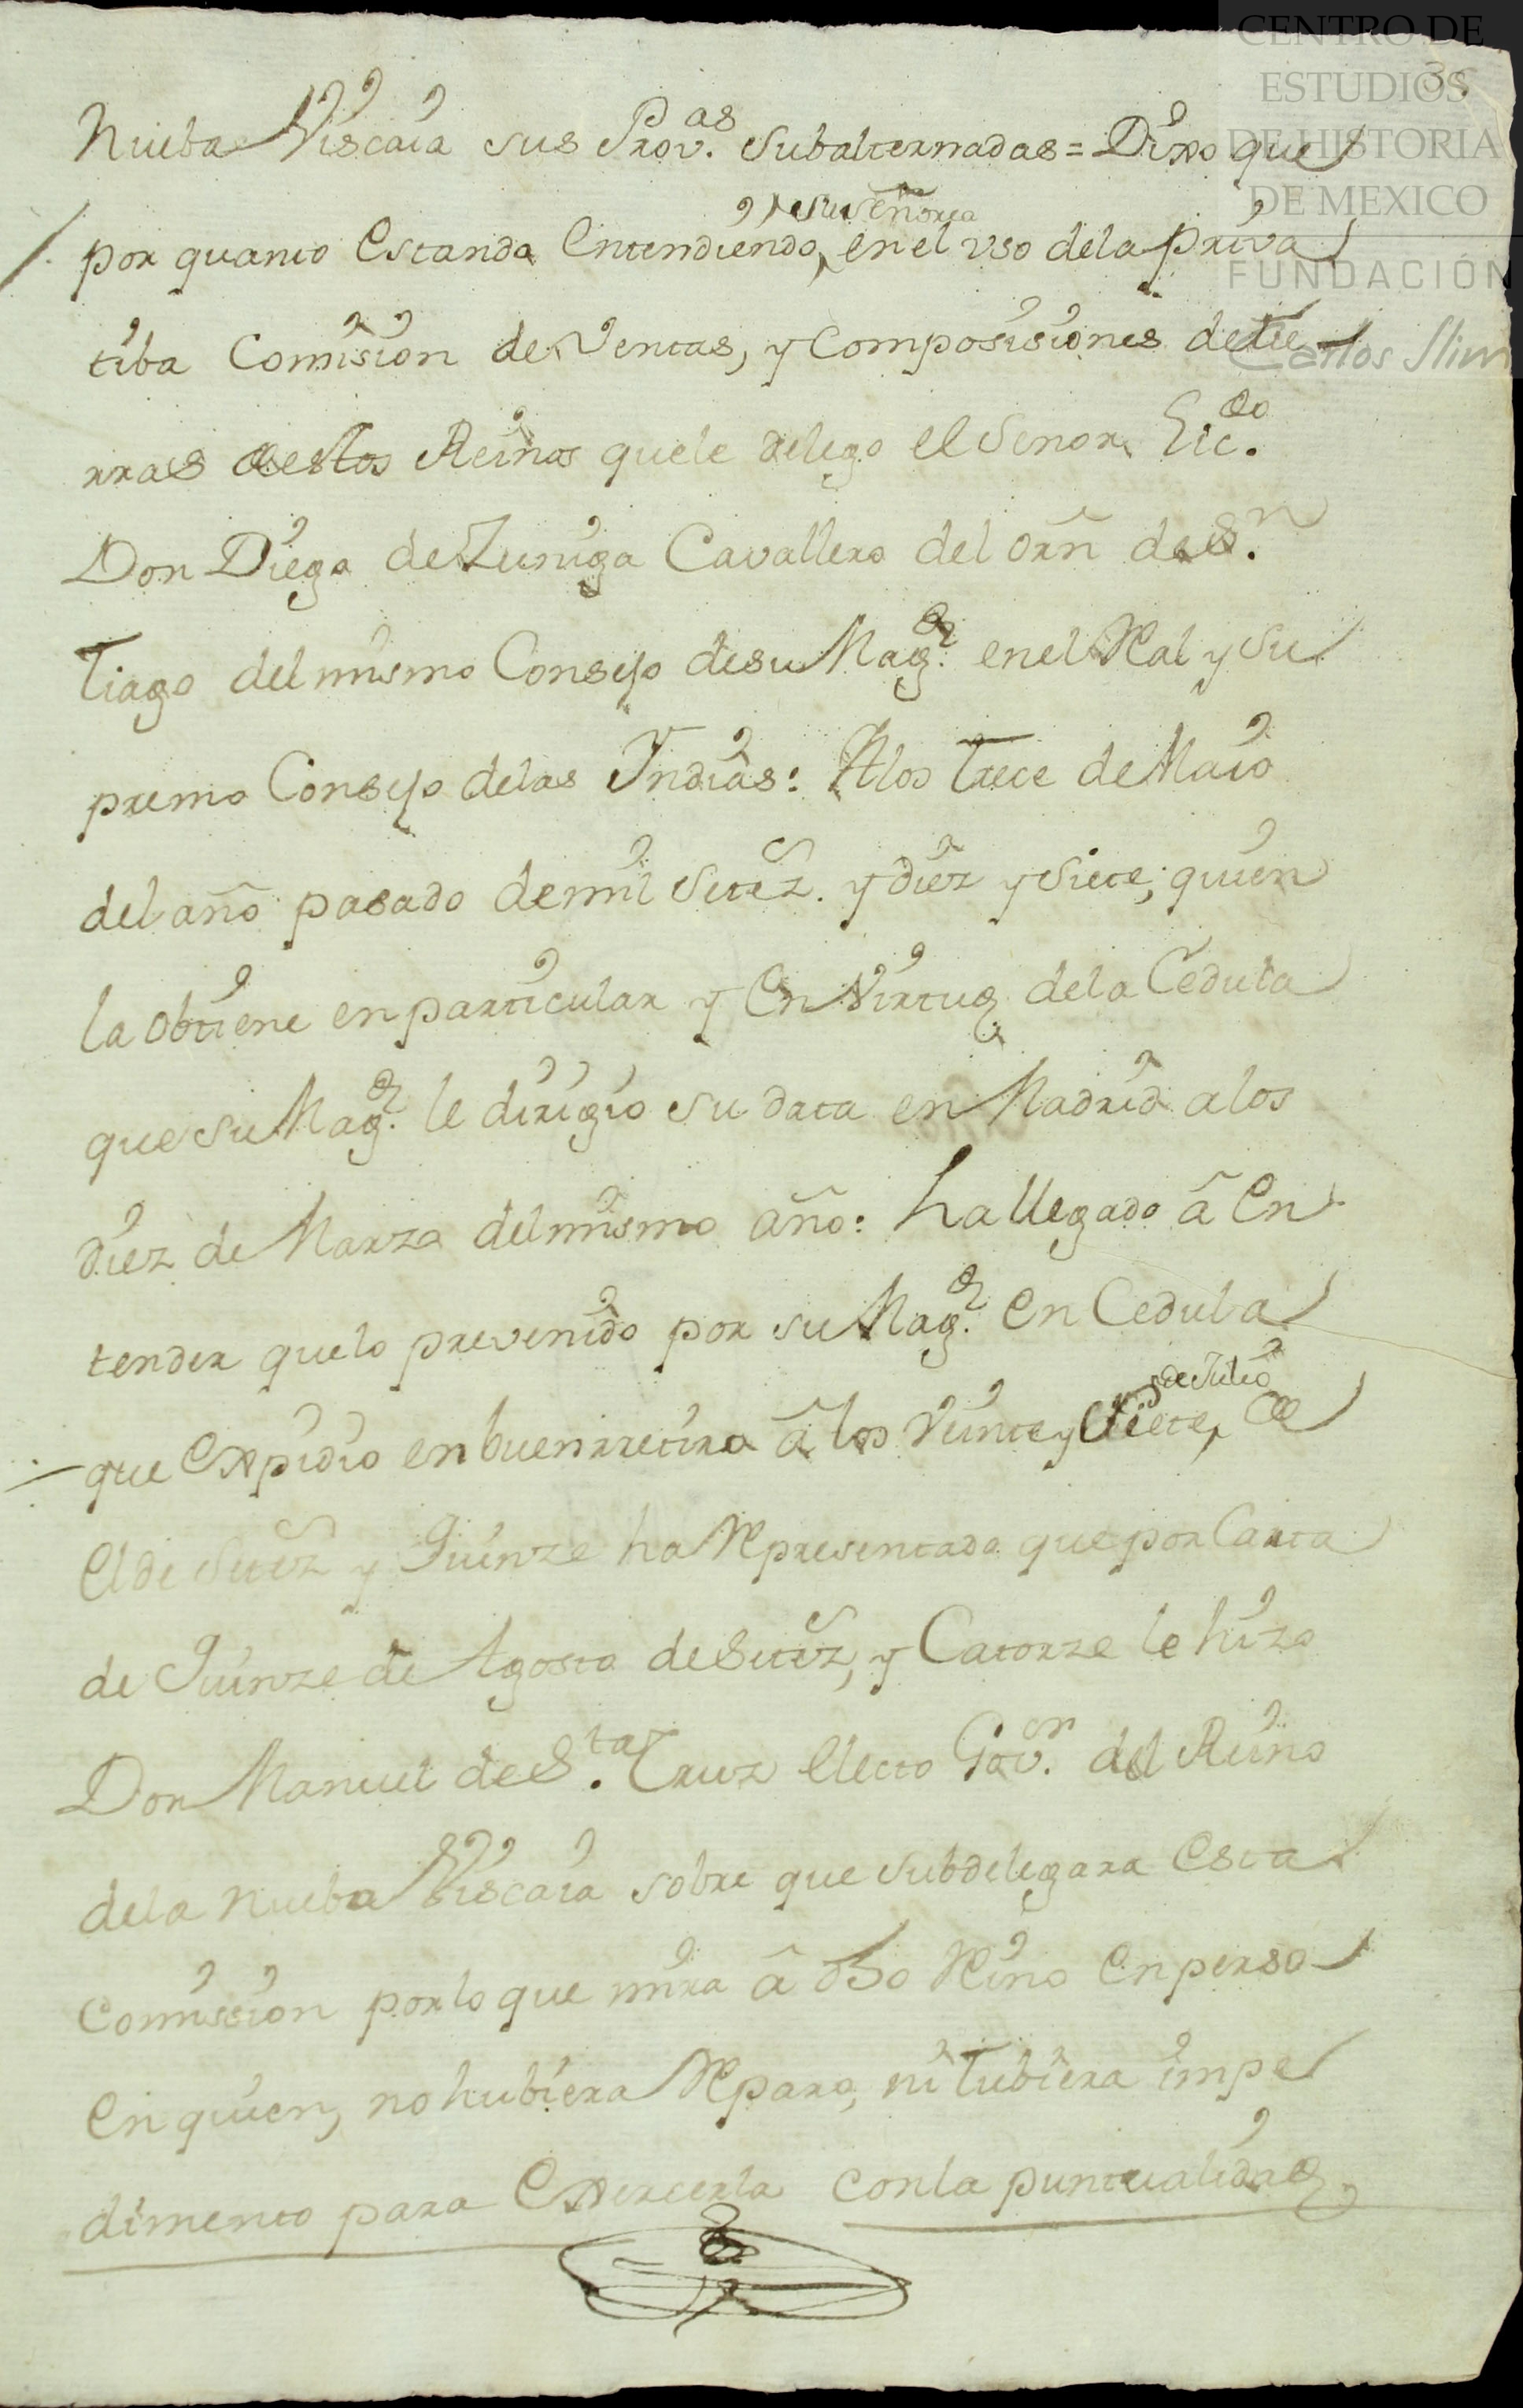 38
CENTRO DE
ESTUDIOS
DE HISTORIA
DE MEXICO
FUNDACIÓN
Carlos Slim
Nueba Viscaia sus Prov.as Subalternadas = Dixo que
por quanto Estando Entendiendo, su señoria en el vso dela priva
tiba Comision de Ventas, y Composisiones de tie
rras destos Reinos quele delego el Senor Lic.do
Don Diego de Zuniga Cavallero del orñ de S.n
Tiago del mismo Consejo de su Mag.d en el Real y Su
premo Consejo delas Yndias: A los Trece de Maio
del año pasado de mil Setez. y diez y siete; quien
la obtiene en particular y En Virtud dela Cedula
que su Mag.d le dirigio su data en Madrid a los
diez de Marzo del mismo año: ha llegado â En
tender quelo prevenido por su Mag.d En Cedula
que Expidio en buenrretiro â los Veinte y Siete, de Julio de
El de Setez y Quinze ha Representado que por Carta
de Quinze de Agosto de Setez, y Catorze le hizo
Don Manuel de S.ta Cruz Electo Gov.or del Reino
dela Nueba Viscaia sobre que subdelegara Esta
Comission por lo que mira â dho Reino En perso
En quien, no hubiera Reparo, ni Tubiera impe
dimento para Exercerla con la puntualidad,